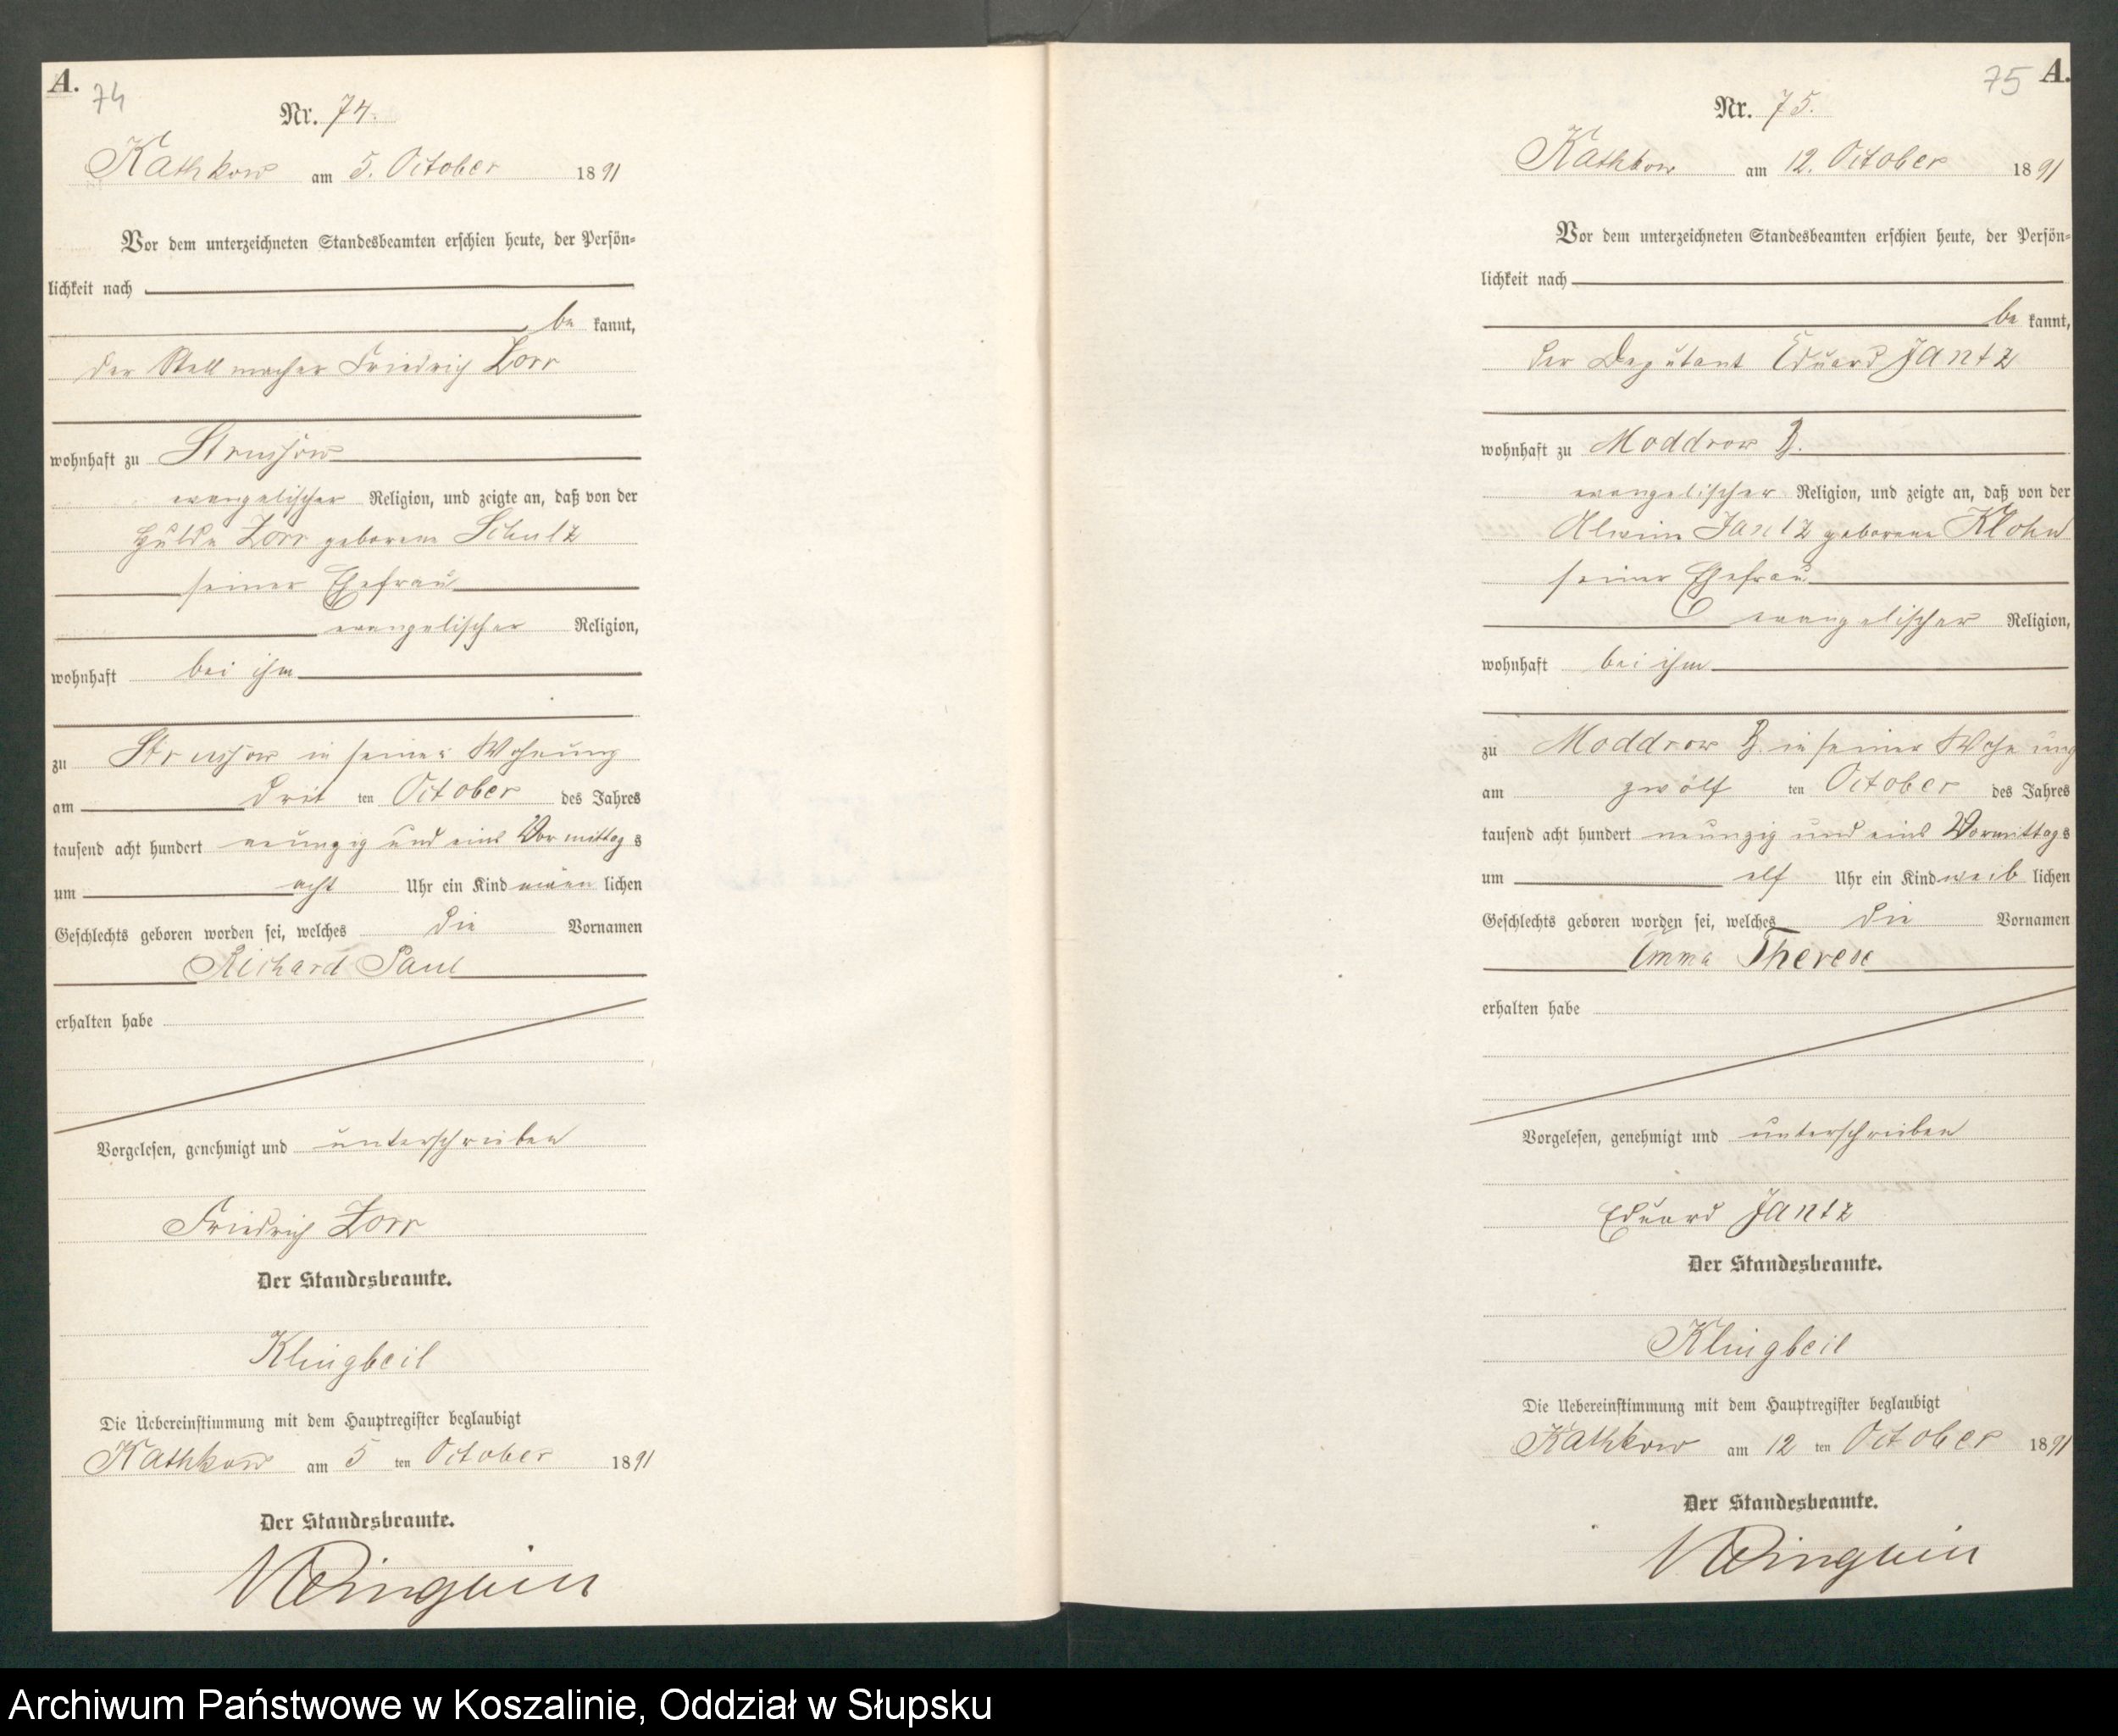 A.
74
Nr. 74.
Kathkow am 5. October 1891
Vor dem unterzeichneten Standesbeamten erschien heute, der Persön-
lichkeit nach
be kannt,
der Stellmacher Friedrich Zorr
wohnhaft zu Strussow
evangelischer Religion, und zeigte an, daß von der
Hulda Zorr geborene Schulz
seiner Ehefrau
evangelischer Religion,
wohnhaft bei ihm
zu Strussow in seiner Wohnung
am drit ten October des Jahres
tausend acht hundert neunzig und eins Vormittag s
um acht Uhr ein Kind männ lichen
Geschlechts geboren worden sei, welches die Vornamen
Richard Paul
erhalten habe
Vorgelesen, genehmigt und unterschrieben
Friedrich Zorr
Der Standesbeamte.
Klingbeil
Die Uebereinstimmung mit dem Hauptregister beglaubigt
Kathkow am 5 ten October 1891
Der Standesbeamte.
Klingbeil
75 A.
Nr. 75.
Kathkow am 12. October 1891
Vor dem unterzeichneten Standesbeamten erschien heute, der Persön-
lichkeit nach
be kannt,
der Deputant Eduard Jantz
wohnhaft zu Moddrow B.
evangelischer Religion, und zeigte an, daß von der
Alwine Jantz geborene Klohn
seiner Ehefrau
evangelischer Religion,
wohnhaft bei ihm
zu Moddrow B. in seiner Wohnung
am zwölf ten October des Jahres
tausend acht hundert neunzig und eins Vormittag s
um elf Uhr ein Kind weib lichen
Geschlechts geboren worden sei, welches die Vornamen
Emma Therese
erhalten habe
Vorgelesen, genehmigt und unterschrieben
Eduard Jantz
Der Standesbeamte.
Klingbeil
Die Uebereinstimmung mit dem Hauptregister beglaubigt
Kathkow am 12 ten October 1891
Der Standesbeamte.
Klingbeil
Archiwum Państwowe w Koszalinie, Oddział w Słupsku